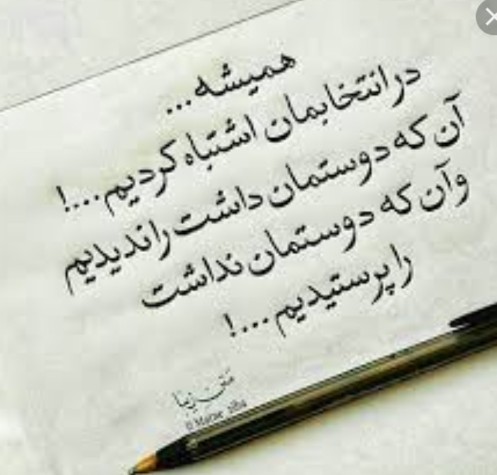 همیشه...
در انتخابمان اشتباه کردیم....!
آن که دوستمان داشت را ندیدیم
و آن که دوستمان نداشت
را پرستیدیم....!
متن زیبا